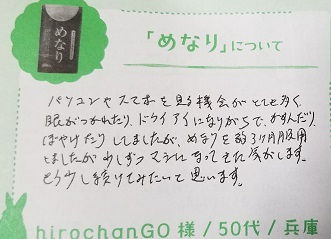 めなり
「めなり」について
パソコンやスマホを見る機会がとても多く
眼がつかれたり、ドライアイになりがちで、かすんだり
ぼやけたりしましたが、めなりを約3ヶ月服用
しましたが少しずつマシになってきた気がします。
もう少し続けてみたいと思います。
hirochanGO 様 / 50代 / 兵庫